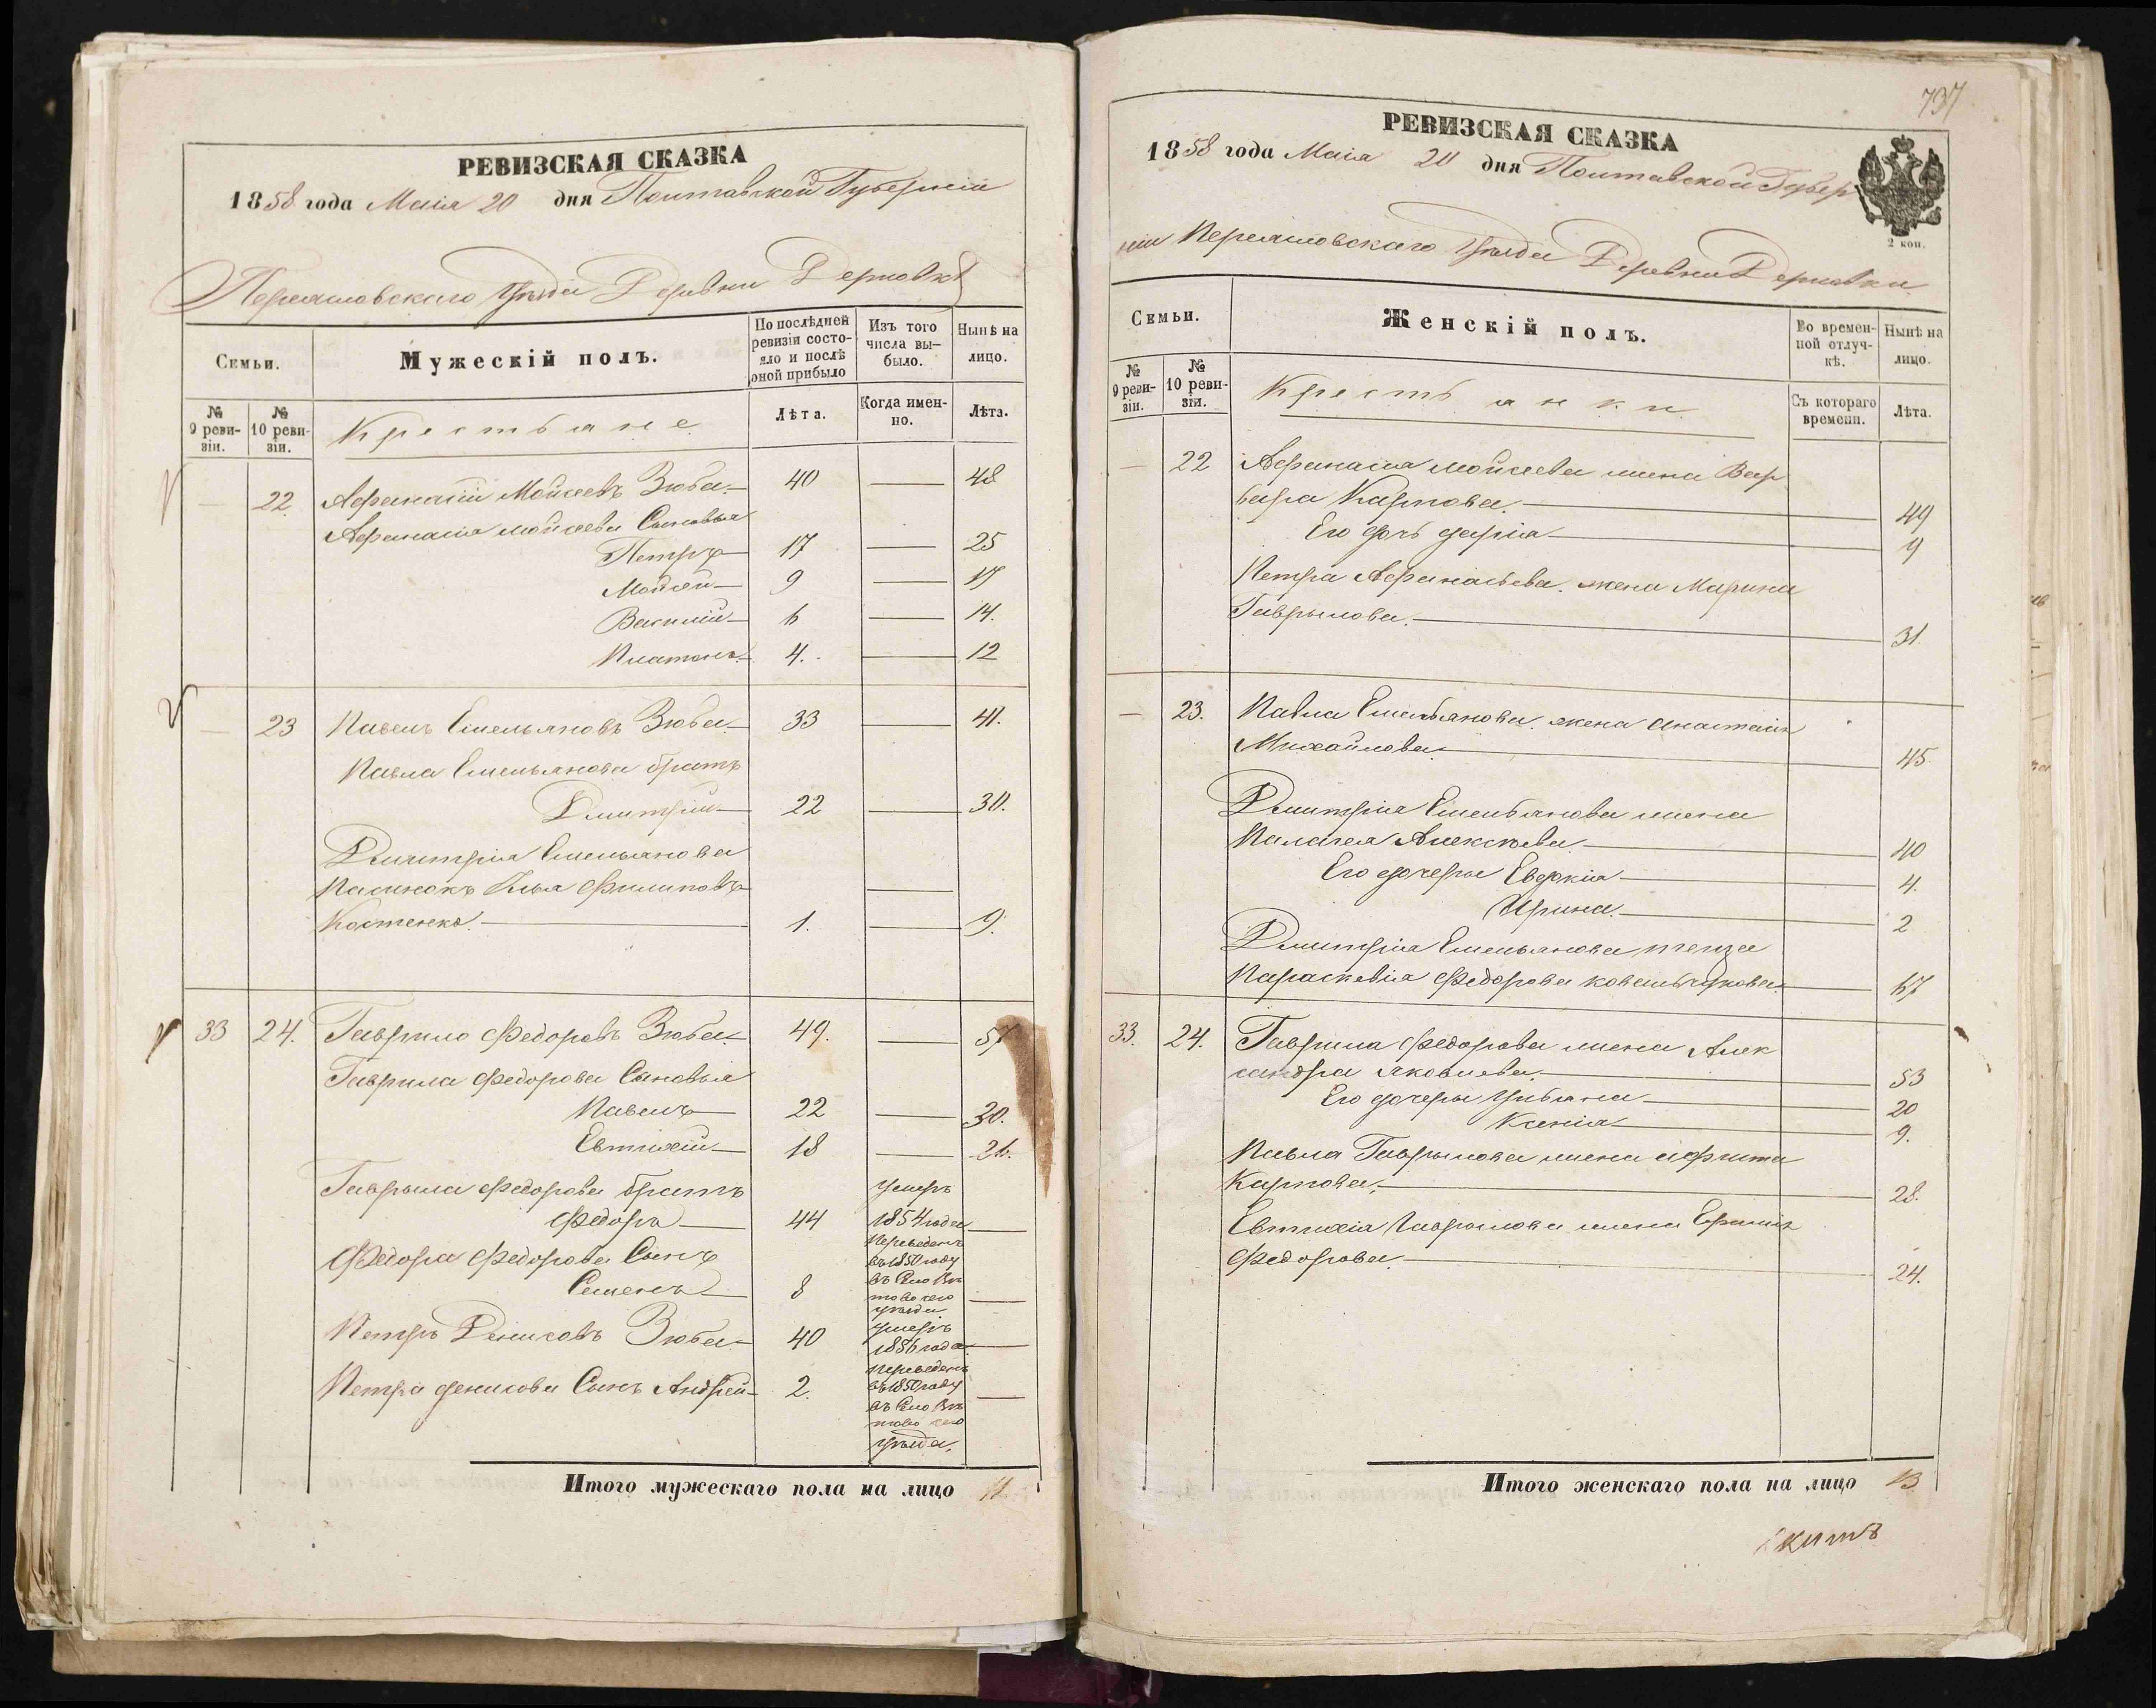 РЕВИЗСКАЯ СКАЗКА
1858 года Маія 20 дня Полтавской Губерніи
Переяславского Уѣзда Деревни Дерновки
Семьи.
Мужескій полъ.
По послѣдней ревизіи состояло и послѣ оной прибыло
Изъ того числа выбыло.
Нынѣ на лицо.
№ 9 ревизіи.
№ 10 ревизіи.
Крестьяне
Лѣта.
Когда именно.
Лѣта.
— 22 Афанасій Мойсеевъ Зюба 40 — 48
Афанасія Мойсеева Сыновья
Петръ 17 — 25
Мойсей 9 — 17
Василій 6 — 14.
Платонъ 4. — 12
— 23 Павелъ Емельяновъ Зюба 33 — 41.
Павла Емельянова братъ
Дмитрій 22 — 30.
Дмитрія Емельянова
Пасинокъ Илья Филиповъ —
Костенко. 1. — 9.
33 24. Гаврило Федоровъ Зюба 49. — 57
Гаврила Федорова Сыновья
Павелъ 22 — 30.
Евтихій 18 — 26.
Гаврыла Федорова братъ умеръ
Федоръ 44 1854 года —
Федора Федорова Сынъ Переведенъ въ 1850 году
Семенъ 8 въ Село сего уѣзда —
Петръ Денисовъ Зюба 40 умеръ 1856 года —
Петра Денисова Сынъ Андрей 2. Переведенъ въ 1850 году —
въ Село
сего
уѣзда.
Итого мужескаго пола на лицо 11
737
РЕВИЗСКАЯ СКАЗКА
1858 года Маія 20 дня Полтавской Губер
2 коп.
ніи Переяславского Уѣзда Деревни Дерновки
Семьи.
Женскій полъ.
Во временной отлучкѣ.
Нынѣ на лицо.
№ 9 ревизіи.
№ 10 ревизіи.
Крестьянки
Съ котораго времени.
Лѣта.
— 22 Афанасія Мойсеева жена Вар
вара Карпова. 49
Его дочь Дарія 9
Петра Афанасьева жена Марина
Гаврылова. 31.
— 23. Павла Емельянова жена Анастасія
Михайлова 45.
Дмитрія Емельянова жена
Палагея Алексѣева 40
Его дочеры Евдокія 4.
Ирина. 2
Дмитрія Емельянова теща
Параскевія Федорова 67
33. 24. Гаврила Федорова жена Алек
сандра Яковлева. 53
Его дочеры Ульяна 20
Ксенія 9.
Павла Гаврылова жена
Карпова. 28.
Евтихія Гаврылова жена
Федорова. 24.
Итого женскаго пола на лицо 13